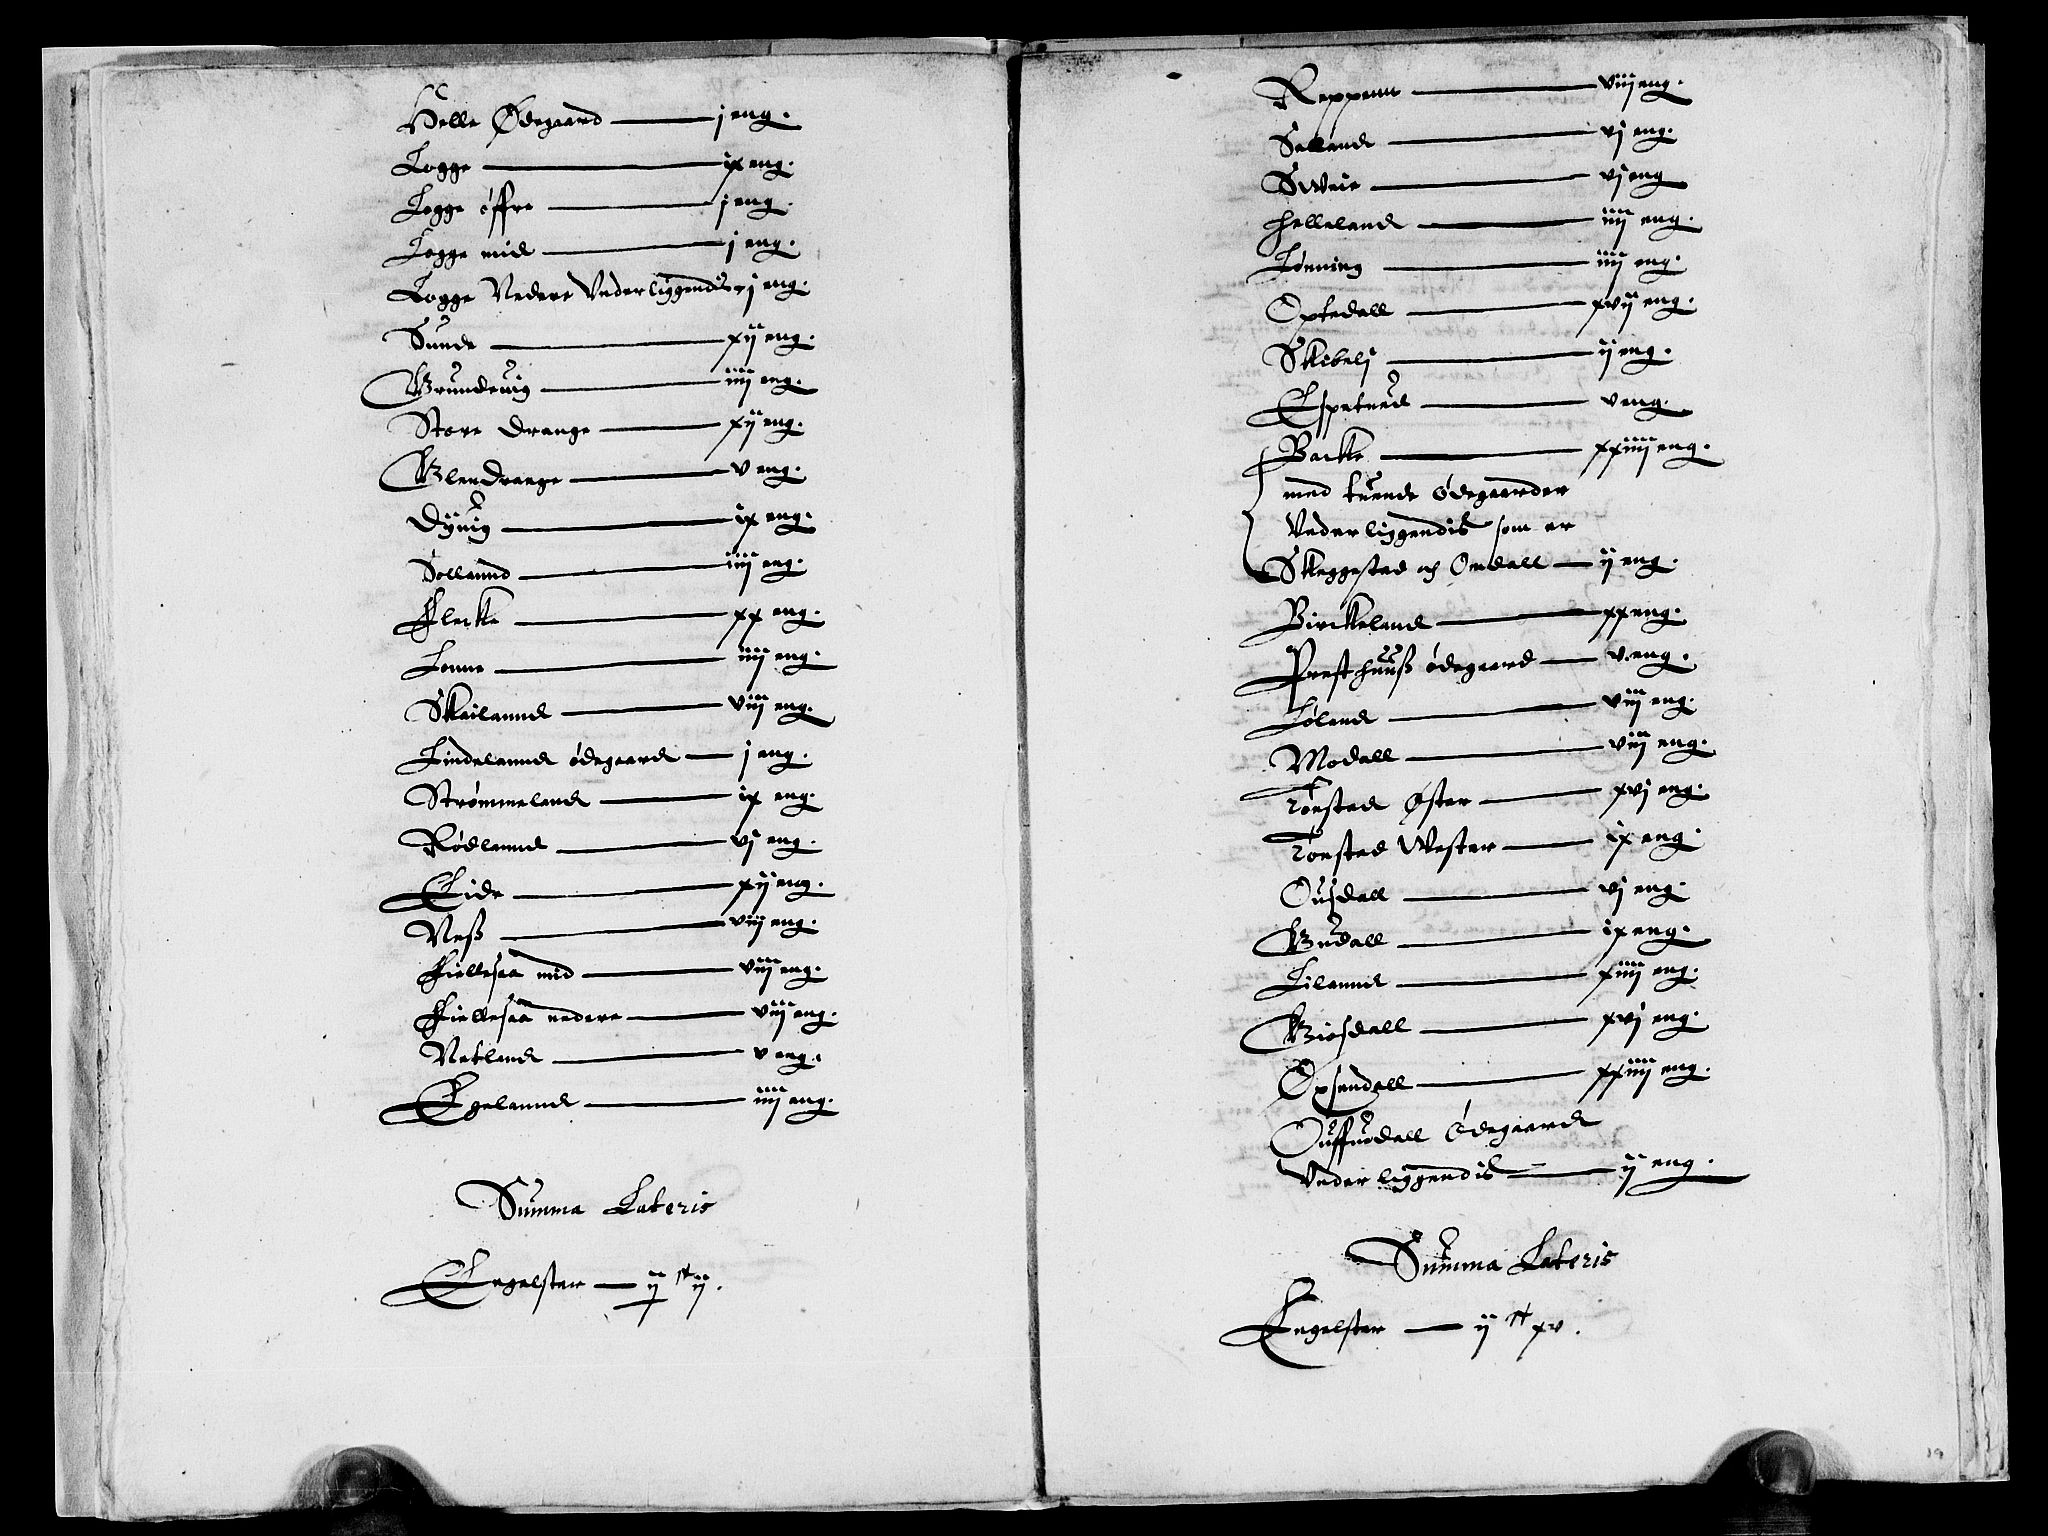 Helle Ødegaard — j eng.
Logge — ix eng.
Logge öffre — j eng.
Logge mid — j eng.
Logge Nedere Vnderliggendis — j eng.
Sunde — xij eng.
Grundeuig — iiij eng.
Store Drange — xij eng.
Glendrange — v eng.
Dyuig — ix eng.
Sollannd — iiij eng.
Flecke — xx eng.
Lonne — iiij eng.
Skailannd — viij eng.
Lindelannd ødegaard — j eng.
Strømmeland — ix eng.
Rødlannd — vj eng.
Eide — xij eng.
Neß — viij eng.
Fiellesaa mid — viij eng.
Fiellesaa nedere — viij eng.
Netland — v eng.
Egelannd — iiij eng.
Summa Lateris
Engelster — ij st ij.
Reppenn — viij eng.
Selland — vj eng.
Sweie — vj eng
Helleland — iiij eng.
Lønning — iiij eng.
Optedall — xvij eng.
Skebelj — ij eng.
Espetued — v eng.
Backe — xxiiij eng.
med tuende Ødegaarder
Vnder liggendis som er
Skeggestad og Omdall — ij eng.
Birckeland — xx eng.
Presthuuß ødegaard — v eng.
Løland — viij eng.
Modall — viij eng.
Tonstad Øster — xvj eng.
Tonstad Wester — ix eng.
Ousdall — vj eng.
Gudall — ix eng.
Lilannd — xiiij eng.
Giosdall — xvj eng.
Oxendall — xxiiij eng.
Ouffuodall Ødegaard
Vnder liggendis — ij eng.
Summa Lateris
Engelster — ij st xv.
19